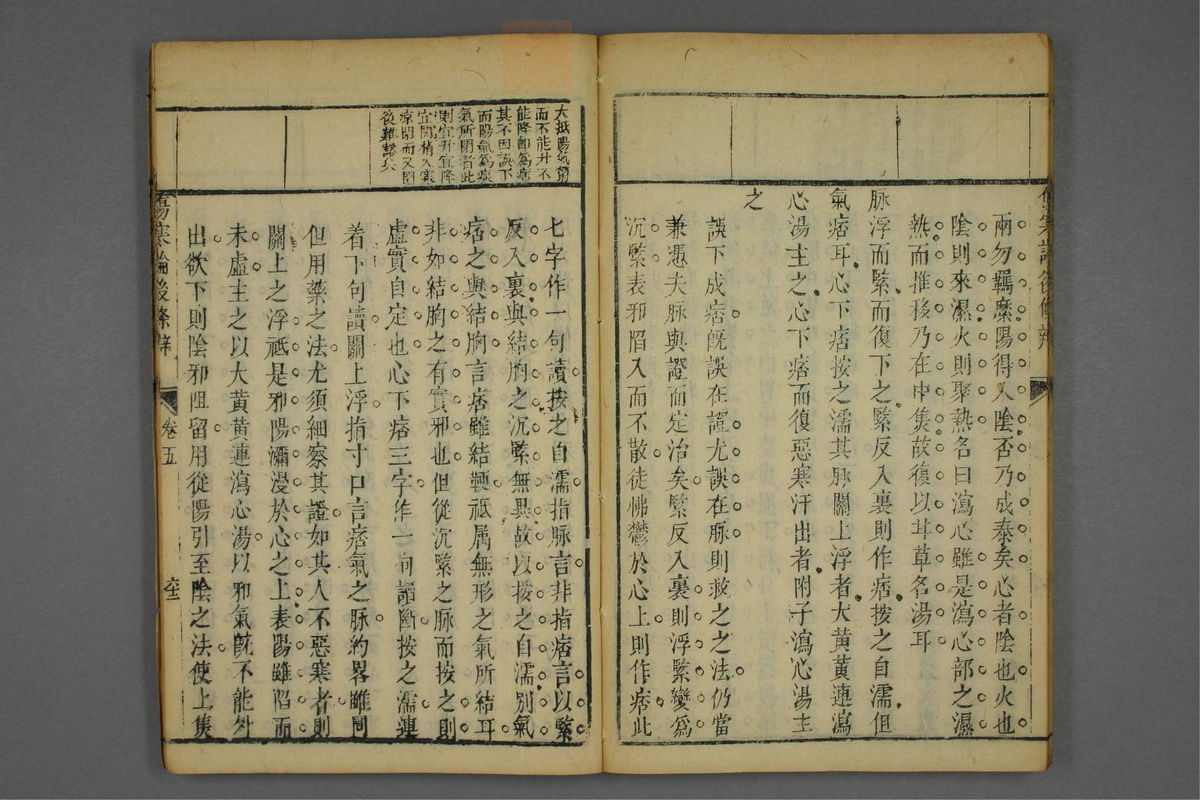 兩勿羈縻陽得入陰否乃成泰矣心者陰也火也
陰則來濕火則聚熱名曰瀉心雖是瀉心部之濕
熱而推移乃在中焦故復以甘草名湯耳
脉浮而緊而復下之緊反入裏則作痞按之自濡但
氣痞耳心下痞按之濡其脉關上浮者大黃黃連瀉
心湯主之心下痞而復惡寒汗出者附子瀉心湯主
之
誤下成痞旣誤在證尤誤在脉則救之之法仍當
兼憑夫脉與證而定治矣緊反入裏則浮緊變爲
沉緊表邪陷入而不散徒怫鬱於心上則作痞此
大抵陽氣
而不能升不
能降卽爲痞
其不因誤下
而陽氣爲痰
氣所閉者此
則宜升宜降
宜開稍入寒
凉閉而又閉
後難救矣
七字作一句讀按之自濡指脉言非指痞言以緊
反入裏與結胸之沉緊無異故以按之自濡別氣
痞之與結胸言痞雖結鞕祗属無形之氣所結耳
非如結胸之有實邪也但從沉緊之脉而按之則
虛實自定也心下痞三字作一句讀斷按之濡連
着下句讀關上浮指寸口言痞氣之脉約畧雖同
但用藥之法尤須細察其證如其人不惡寒者則
關上之浮祗是邪陽瀰漫於心之上表陽雖陷而
未虛主之以大黃黃連瀉心湯以邪氣旣不能外
出欲下則陰邪阻留用從陽引至陰之法使上焦
傷寒論後條辨
卷五